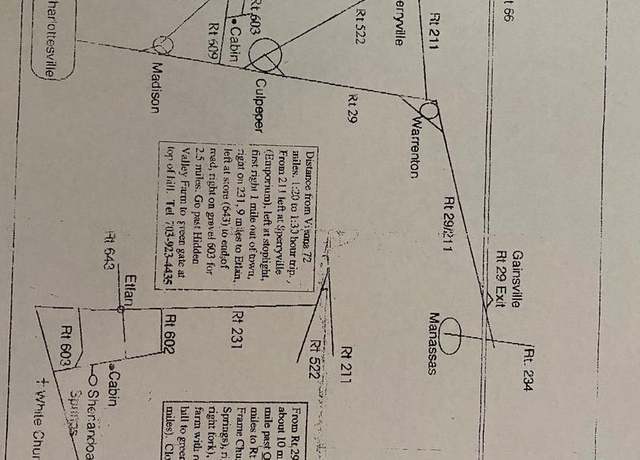 harlottesville
Madison
Rt 609
Cabin
Rt 603
Culpeper
Rt 522
erryville
Rt 211
t 66
Rt 29
Warrenton
Rt 29/211
Gainsville
Rt 29 Exit
Manassas
Rt. 234
Distance from Vienna 72
miles. 1:20 to 1:33 hour trip.
From 211 left at Sperryville
(Emporium), left at stoplight,
first right 1 mile out of town,
right on 231, 9 miles to Etlan,
left at store (643) to end of
road, right on gravel 603 for
2.5 miles. Go past Hidden
Valley Farm to green gate at
top of hill. Tel 703-923-4435
Rt 643
Etlan
Rt 602
Rt 231
Rt 522
Rt 211
Rt 603
Cabin
Shenandoa
Springs
White Chur
From Rt 29
about 10 m
mile past O
miles to Rt
Frame Chu
Springs), ri
right fork),
farm with r
hill to gree
miles). Clo